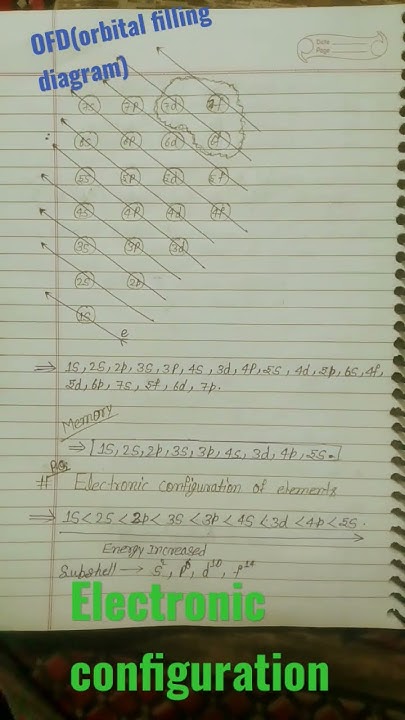 OFD(orbital filling
diagram)
Date
Page
7s 7p 7d 7f
6s 6p 6d 6f
5s 5p 5d 5f
4s 4p 4d 4f
3s 3p 3d
2s 2p
1s
e
⇒ 1s, 2s, 2p, 3s, 3p, 4s, 3d, 4p, 5s, 4d, 5p, 6s, 4f,
5d, 6p, 7s, 5f, 6d, 7p.
Memory
⇒ [1s, 2s, 2p, 3s, 3p, 4s, 3d, 4p, 5s.]
# Electronic configuration of elements
⇒ 1s < 2s < 2p < 3s < 3p < 4s < 3d < 4p < 5s.
Energy Increased
Subshell → s², p⁶, d¹⁰, f¹⁴
Electronic
configuration